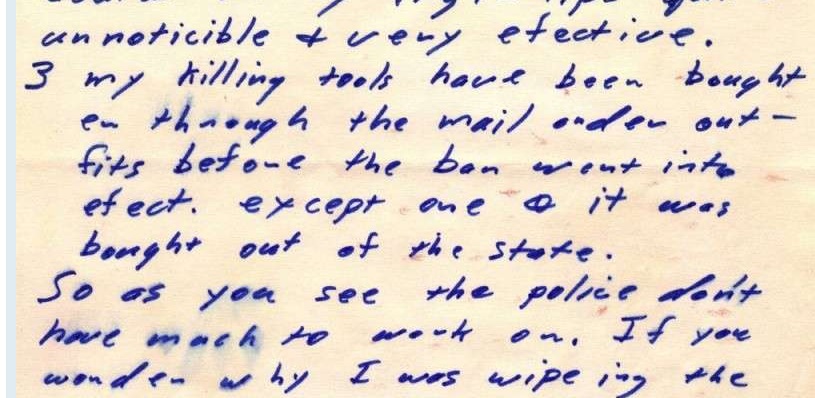 unnoticible & very efective.
3 my killing tools have been bought
en through the mail order out-
fits before the ban went into
efect. except one & it was
bought out of the state.
So as you see the police don't
have much to work on. If you
wonder why I was wipeing the